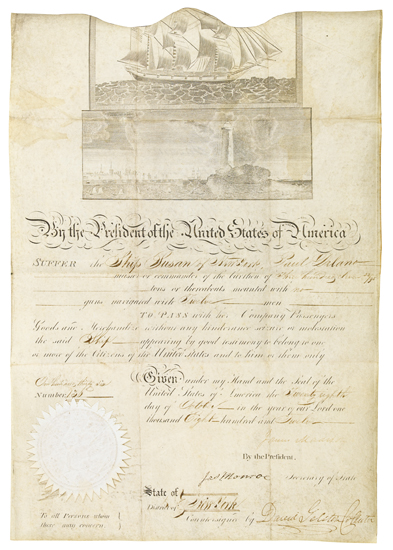 By the President of the United States of America
SUFFER the Ship Susan of New York Paul Delano
master or commander of the burthen of
tons or thereabouts mounted with no
guns navigated with Twelve men
TO PASS with her Company Passengers
Goods and Merchandize without any hinderance seizure or molestation
the said Ship appearing by good testimony to belong to one
or more of the Citizens of the United States and to him or them only
Given under my Hand and the Seal of the
Number
United States of America the Twenty eighth
day of October in the year of our Lord one
thousand Eight hundred and Twelve
James Madison
By the President,
Jas Monroe Secretary of State
State of
New York
District of
To all Persons whom
these may concern.
Countersigned by David Gelston Collector